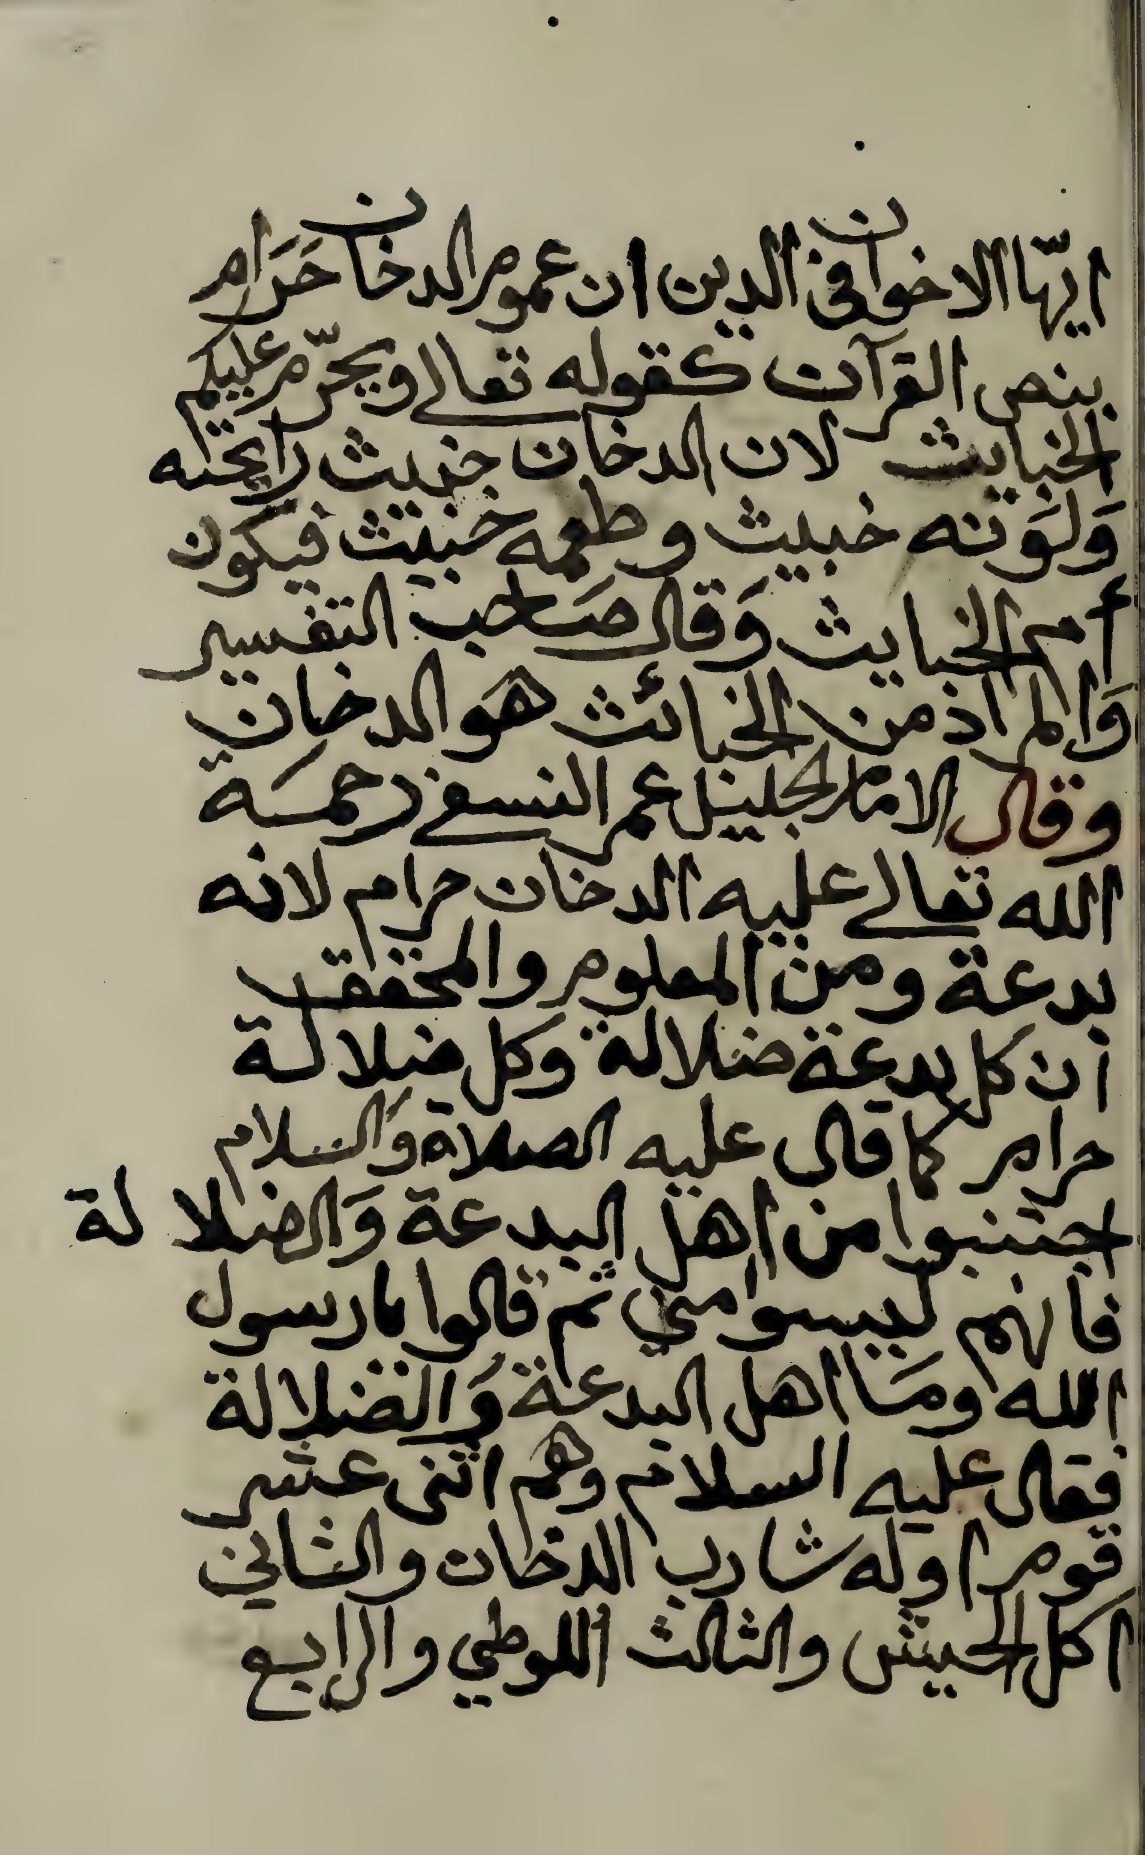 ايّها الاخوان في الدين ان عموم الدخان حَرَام
بنص القرآن كقوله تعالى ويحرّم عليكم
الخبايث لان الدخان خبيث رايحته
وَلَوَنه خبيث وطعمه خبيث فيكون
أم الخبايث وَقال صَاحب التفسير
وَالمراد من الخبائث هَو الدخان
وقال الامام الجليل عمر النسفي رحمَة
الله تعالى عليه الدخان حرام لانه
بدعة ومن المعلوم والمحقق
ان كل بدعة ضلالة وكل ضلالة
حرام كما قال عليه الصلاة وَالسلام
اجتنبوا من اهل البدعة وَالضلالة
فانهم ليسوا مني ثم قالوا يا رسول
الله ومَا اهل البدعة وَالضلالة
فقال عليه السلام وهم اثنى عشر
قوم اوله شارب الدخان والثاني
اكل الحيش والثالث اللوطي والرابع